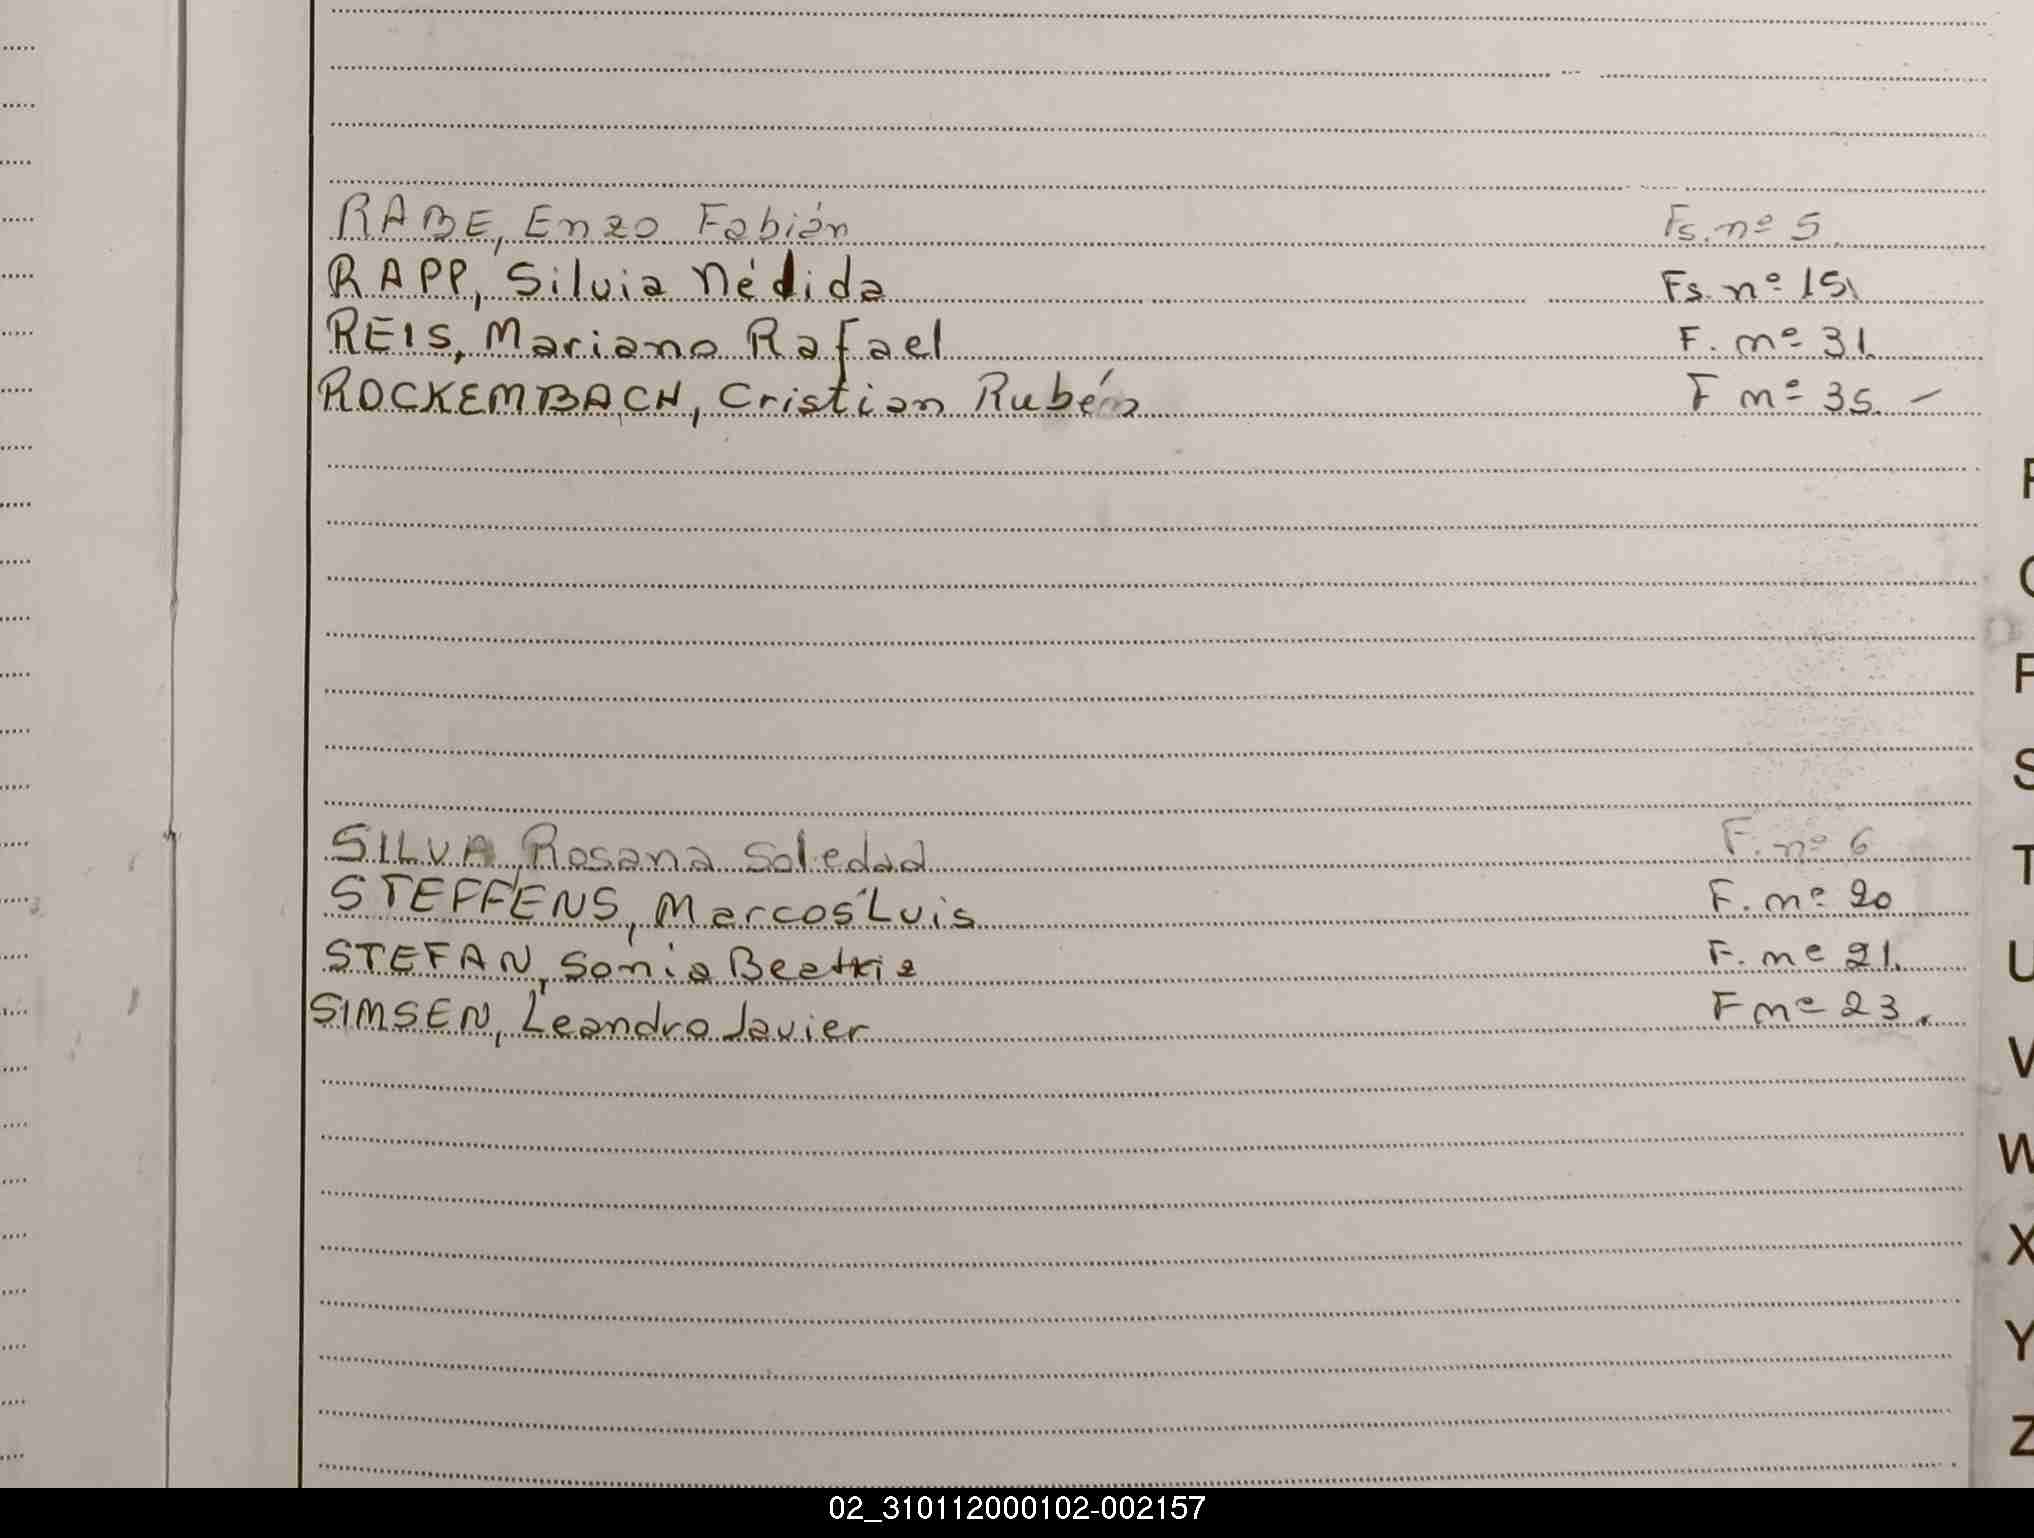 RABE, Enzo Fabián Fs. nº 5
RAPP, Silvia Nélida Fs. nº 15
REIS, Mariano Rafael F. nº 31
ROCKEMBACH, Cristian Rubén F nº 35. –
SILVA, Rosana Soledad F. nº 6
STEFFENS, Marcos Luis F. nº 20
STEFAN, Sonia Beatriz F. nº 21.
SIMSEN, Leandro Javier F nº 23.
S
T
U
V
W
X
Y
Z
02_310112000102-002157